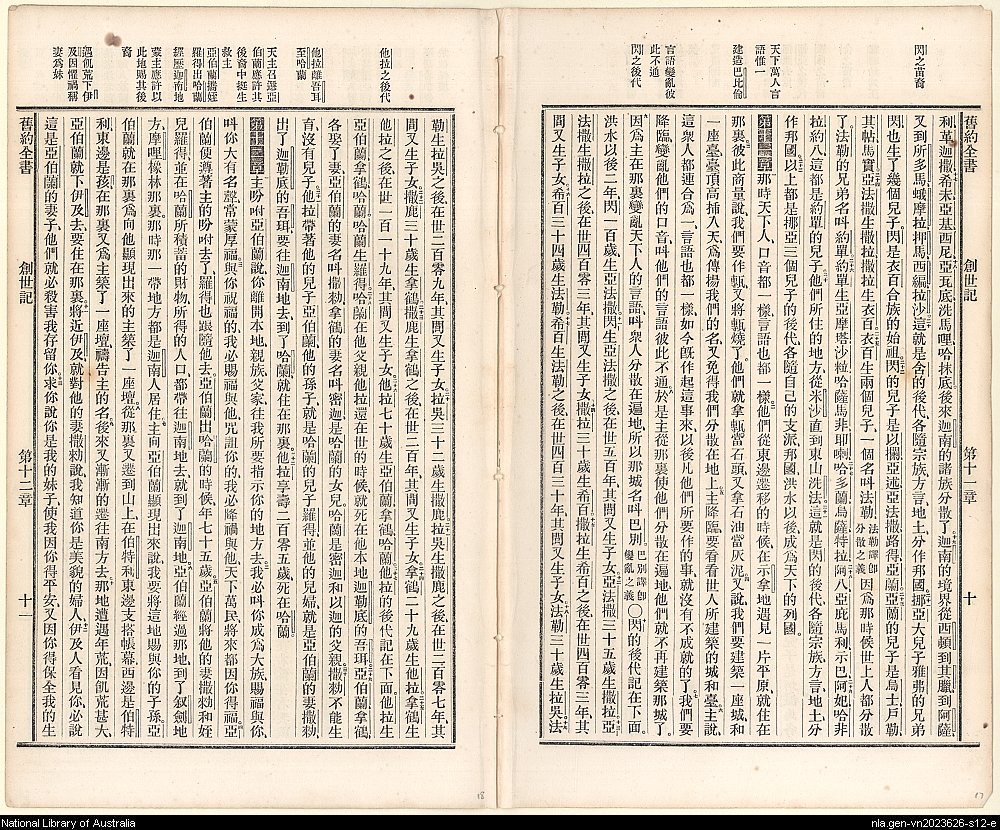 閃之苗裔
天下萬人言
語惟一
建造巴比倫
言語變亂彼
此不通
閃之後代
舊約全書 創世記 第十一章 十
利、革迦撒、希未亞基、西尼、亞瓦底、洗馬哩、哈抹底、後來迦南的諸族分散了、迦南的境界從西頓到其臘、到阿薩、
又到所多馬、蛾摩拉、押馬、西編、拉沙、這就是含的後代、各隨宗族、方言、地土、分作邦國、挪亞大兒子雅弗的兄弟
閃、也生了幾個兒子、閃是衣百合族的始祖、閃的兒子是以攔、亞述、亞法撒、路得、亞蘭、亞蘭的兒子是烏士、戶勒、
其帖、馬實、亞法撒生撒拉、撒拉生衣百、衣百生兩個兒子、一個名叫法勒、法勒譯即分散之義因為那時侯世上人都分散
了、法勒的兄弟名叫約單、約單生亞摩答、沙粒、哈薩馬非、耶喇、哈多蘭、烏薩、特拉、阿八、亞庇馬利、示巴、阿妃、哈非
拉、約八、這都是約單的兒子、他們所住的地方、從米沙直到東山洗法、這就是閃的後代、各隨宗族、方言、地土、分
作邦國、以上都是挪亞三個兒子的後代、各隨自己的支派邦國、洪水以後成為天下的列國
第十一章那時天下人、口音都一樣、言語也都一樣、他們從東邊遷移的時候、在示拿地遇見一片平原、就住在
那裏、彼此商量說、我們要作甎、又將甎燒了、他們就拿甎當石頭、又拿石油當灰泥、又說、我們要建築一座城、和
一座臺、臺頂高插入天、為傳揚我們的名、又免得我們分散在地上、主降臨、要看看世人所建築的城和臺、主說、
這衆人都連合為一、言語也都一樣、如今旣作起這事來、以後凡他們所要作的事、就沒有不成就的了、我們要
降臨、變亂他們的口音、叫他們的言語彼此不通、於是主從那裏使他們分散在遍地、他們就不再建築那城了、
因為主在那裏變亂天下人的言語、叫衆人分散在遍地、所以那城名叫巴別、巴別譯卽變亂之義〇閃的後代記在下面、
洪水以後二年、閃一百歲生亞法撒、閃生亞法撒之後、在世五百年、其間又生子女、亞法撒三十五歲生撒拉、亞
法撒生撒拉之後、在世四百零三年、其間又生子女、撒拉三十歲生希百、撒拉生希百之後、在世四百零三年、其
間又生子女、希百三十四歲生法勒、希百生法勒之後、在世四百三十年、其間又生子女、法勒三十歲生拉吳、法
他拉之後代
他拉離吾耳
至哈蘭
天主召選亞
伯蘭應許其
後裔中挺生
救主
亞伯蘭攜姪
羅得出哈蘭
經歷迦南地
蒙主應許以
此地賜其後
裔
遇飢荒下伊
及因懼禍稱
妻為妹
勒生拉吳之後、在世二百零九年、其間又生子女、拉吳三十二歲生撒鹿、拉吳生撒鹿之後、在世二百零七年、其
間又生子女、撒鹿三十歲生拿鶴、撒鹿生拿鶴之後、在世二百年、其間又生子女、拿鶴二十九歲生他拉、拿鶴生
他拉之後、在世一百一十九年、其間又生子女、他拉七十歲生亞伯蘭、拿鶴、哈蘭、他拉的後代記在下面、他拉生
亞伯蘭、拿鶴、哈蘭、哈蘭生羅得、哈蘭在他父親他拉還在世的時候、就死在他本地迦勒底的吾珥、亞伯蘭、拿鶴、
各娶了妻、亞伯蘭的妻名叫撒勑、拿鶴的妻名叫密迦、是哈蘭的女兒、哈蘭是密迦和以迦的父親、撒勑不能生
育、沒有兒子、他拉帶著他的兒子亞伯蘭、他的孫子、就是哈蘭的兒子羅得、並他的兒婦、就是亞伯蘭的妻撒勑、
出了迦勒底的吾珥、要往迦南地去、到了哈蘭就住在那裏、他拉享壽二百零五歲、死在哈蘭
第十二章主吩咐亞伯蘭說、你離開本地親族父家、往我所要指示你的地方去、我必叫你成為大族、賜福與你、
叫你大有名聲、常蒙厚福、與你祝福的、我必賜福與他、咒詛你的、我必降禍與他、天下萬民將來都因你得福、亞
伯蘭便遵著主的吩咐去了、羅得也跟隨他去、亞伯蘭出哈蘭的時候、年七十五歲、亞伯蘭將他的妻撒勑、和姪
兒羅得、並在哈蘭所積蓄的財物、所得的人口、都帶往迦南地去、就到了迦南地、亞伯蘭經過那地、到了叙劍地
方、摩哩橡林那裏、那時那一帶地方都是迦南人居住、主向亞伯蘭顯現出來、說、我要將這地賜與你的子孫、亞
伯蘭就在那裏為向他顯現出來的主、築了一座壇、從那裏又遷到山上、在伯特利東邊支搭帳幕、西邊是伯特
利、東邊是孩、在那裏又為主築了一座壇、禱告主的名、後來又漸漸的遷往南方去、那地遭遇年荒、因飢荒甚大、
亞伯蘭就下伊及去、要在那裏、將近伊及、就對他的妻撒勑說、我知道你是美貌的婦人、伊及人看見你、必說
這是亞伯蘭的妻子、他們就必殺害我、存留你、求你說你是我的妹子、使我因你得平安、又因你得保全我的生
舊約全書 創世記 第十二章 十一
18
17
National Library of Australia
nla.gen-vn2023626-s12-e